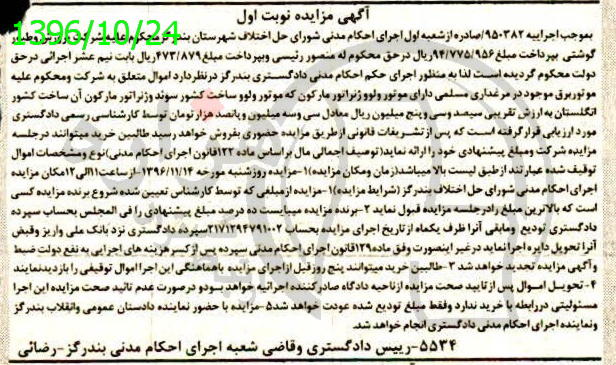 آگهی مزایده نوبت اول
1396/10/24
بموجب اجراییه ۹۵۰۳۸۲/صادره ازشعبه اول اجرای احکام مدنی شورای حل اختلاف شهرستان بندرگز محکوم علیه شرکت پرورش وطیور
گوشتی بپرداخت مبلغ ۹۴/۷۷۵/۹۵۶ریال در حق محکوم له منصور رئیسی وبپرداخت مبلغ ۴۷۳/۸۷۹ریال بابت نیم عشر اجرائی درحق
دولت محکوم گردیده است لذا به منظور اجرای حکم اجرای احکام مدنی دادگستری بندرگز درنظردارد اموال متعلق به شرکت ومحکوم علیه
موتوربرق موجود در مرغداری مسلمی دارای موتور ولوو ژنراتور مارکون که موتور ولوو ساخت کشور سوئد وژنراتور مارکون آن ساخت کشور
انگلستان به ارزش تقریبی سیصد وسی وپنج میلیون ریال معادل سی وسه میلیون وپانصد هزار تومان توسط کارشناسی رسمی دادگستری
مورد ارزیابی قرار گرفته است که پس از تشریفات قانونی از طریق مزایده حضوری بفروش خواهد رسید طالبین خرید میتوانند درجلسه
مزایده شرکت ومبلغ پیشنهادی خود را ارائه نماید(توصیف اجمالی مال بر اساس ماده ۱۲۲قانون اجرای احکام مدنی)نوع ومشخصات اموال
توقیف شده عبارتند از طبق لیست بالا میباشد(زمان ومکان مزایده)۱-مزایده روزشنبه مورخه ۱۳۹۶/۱۱/۱۴-ازساعت۱۱الی۱۲مکان مزایده
اجرای احکام مدنی شورای حل اختلاف بندرگز (شرایط مزایده)۱-مزایده ازمبلغی که توسط کارشناس تعیین شده شروع برنده مزایده کسی
است که بالاترین مبلغ رادرجلسه مزایده قبول نماید ۲-برنده مزایده میبایست ده درصد مبلغ پیشنهادی را فی المجلس بحساب سپرده
دادگستری تودیع ومابقی آنرا ظرف یکماه از تاریخ اجرای مزایده بحساب ۲۱۷۱۲۹۴۷۹۱۰۰۲سپرده دادگستری نزد بانک ملی واریز وقبض
آنرا تحویل دایره اجرانماید درغیر اینصورت وفق ماده ۱۲۹قانون اجرای احکام مدنی سپرده پس از کسر هزینه های اجرایی به نفع دولت ضبط
وآگهی مزایده تجدید خواهد شد ۳-طالبین خرید میتوانند پنج روزقبل ازاجرای مزایده باهماهنگی این اجرا اموال توقیفی را بازدیدنمایند
۴-تحویل اموال پس ازتایید صحت مزایده ازناحیه دادگاه صادرکننده اجرائیه خواهد بود و درصورت عدم تائید صحت مزایده این اجرا
مسئولیتی دررابطه با خرید ندارد وفقط مبلغ تودیع شده عودت خواهد شد۵-مزایده با حضور نماینده دادستان عمومی وانقلاب بندرگز
ونماینده اجرای احکام مدنی دادگستری انجام خواهد شد.
۵۵۳۴-رییس دادگستری وقاضی شعبه اجرای احکام مدنی بندرگز-رضائی